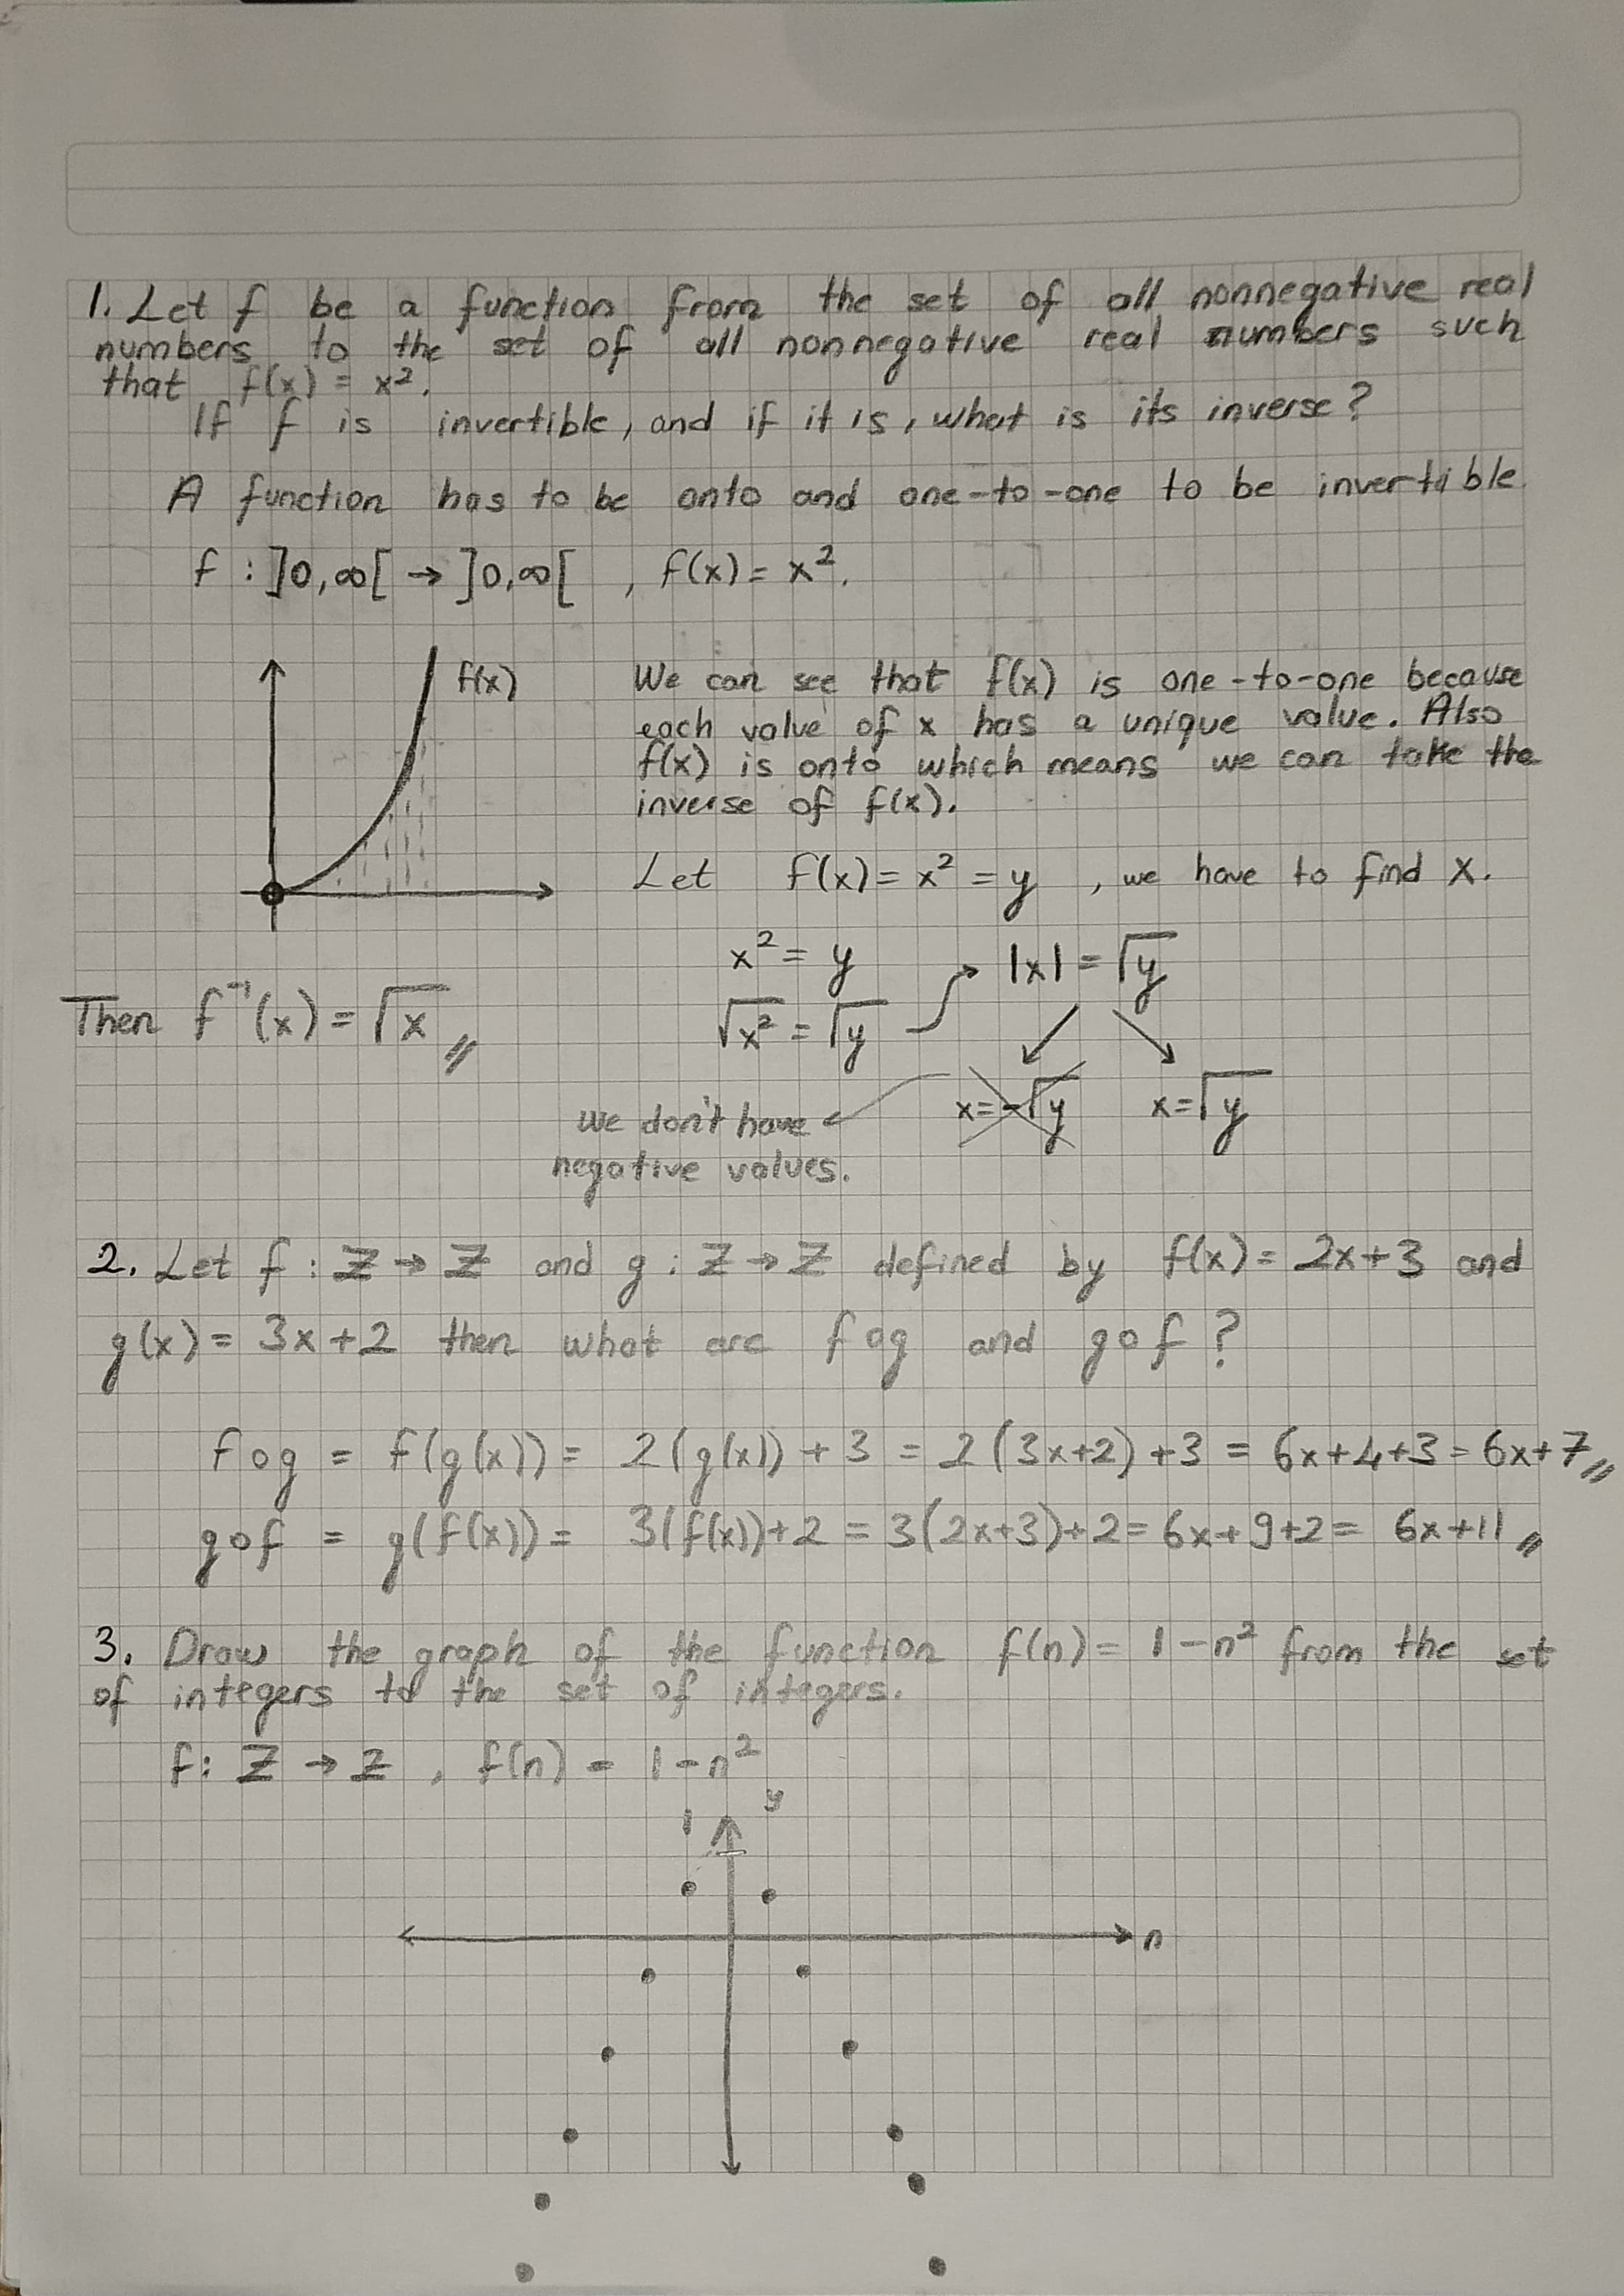 1. Let f be a function from the set of all nonnegative real
numbers to the set of all nonnegative real numbers such
that f(x) = x².
If f is invertible, and if it is, what is its inverse?
A function has to be onto and one-to-one to be invertible.
f : ]0,∞[ → ]0,∞[ , f(x) = x².
f(x)
We can see that f(x) is one-to-one because
each value of x has a unique value. Also
f(x) is onto which means we can take the
inverse of f(x).
Let f(x) = x² = y , we have to find x.
x² = y
|x| = √y
√x² = √y
x = -√y
x = √y
we don't have
negative values.
Then f⁻¹(x) = √x //
2. Let f : Z → Z and g : Z → Z defined by f(x) = 2x+3 and
g(x) = 3x+2 then what are fog and gof ?
fog = f(g(x)) = 2(g(x)) + 3 = 2(3x+2) + 3 = 6x+4+3 = 6x+7 //
gof = g(f(x)) = 3(f(x))+2 = 3(2x+3)+2 = 6x+9+2 = 6x+11 //
3. Draw the graph of the function f(n) = 1-n² from the set
of integers to the set of integers.
f: Z → Z , f(n) = 1-n²
y
1
n